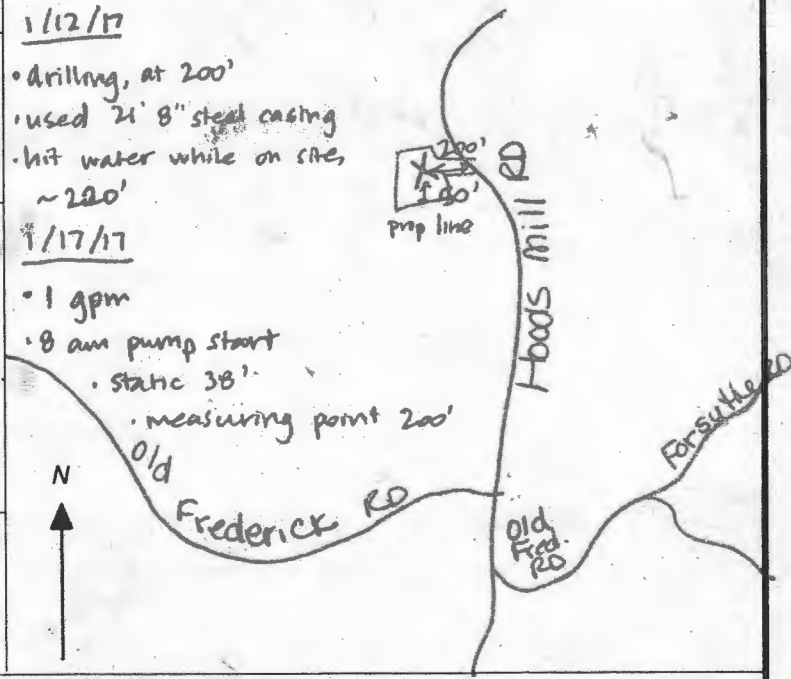 1/12/17
• drilling, at 200'
• used 21' 8" steel casing
• hit water while on site,
~220'
1/17/17
• 1 gpm
• 8 am pump start
• static 38'
• measuring point 200'
200'
50'
prop line
Hoods Mill RD
Old Frederick RD
Old Fred. RD
Forsythe RD
N